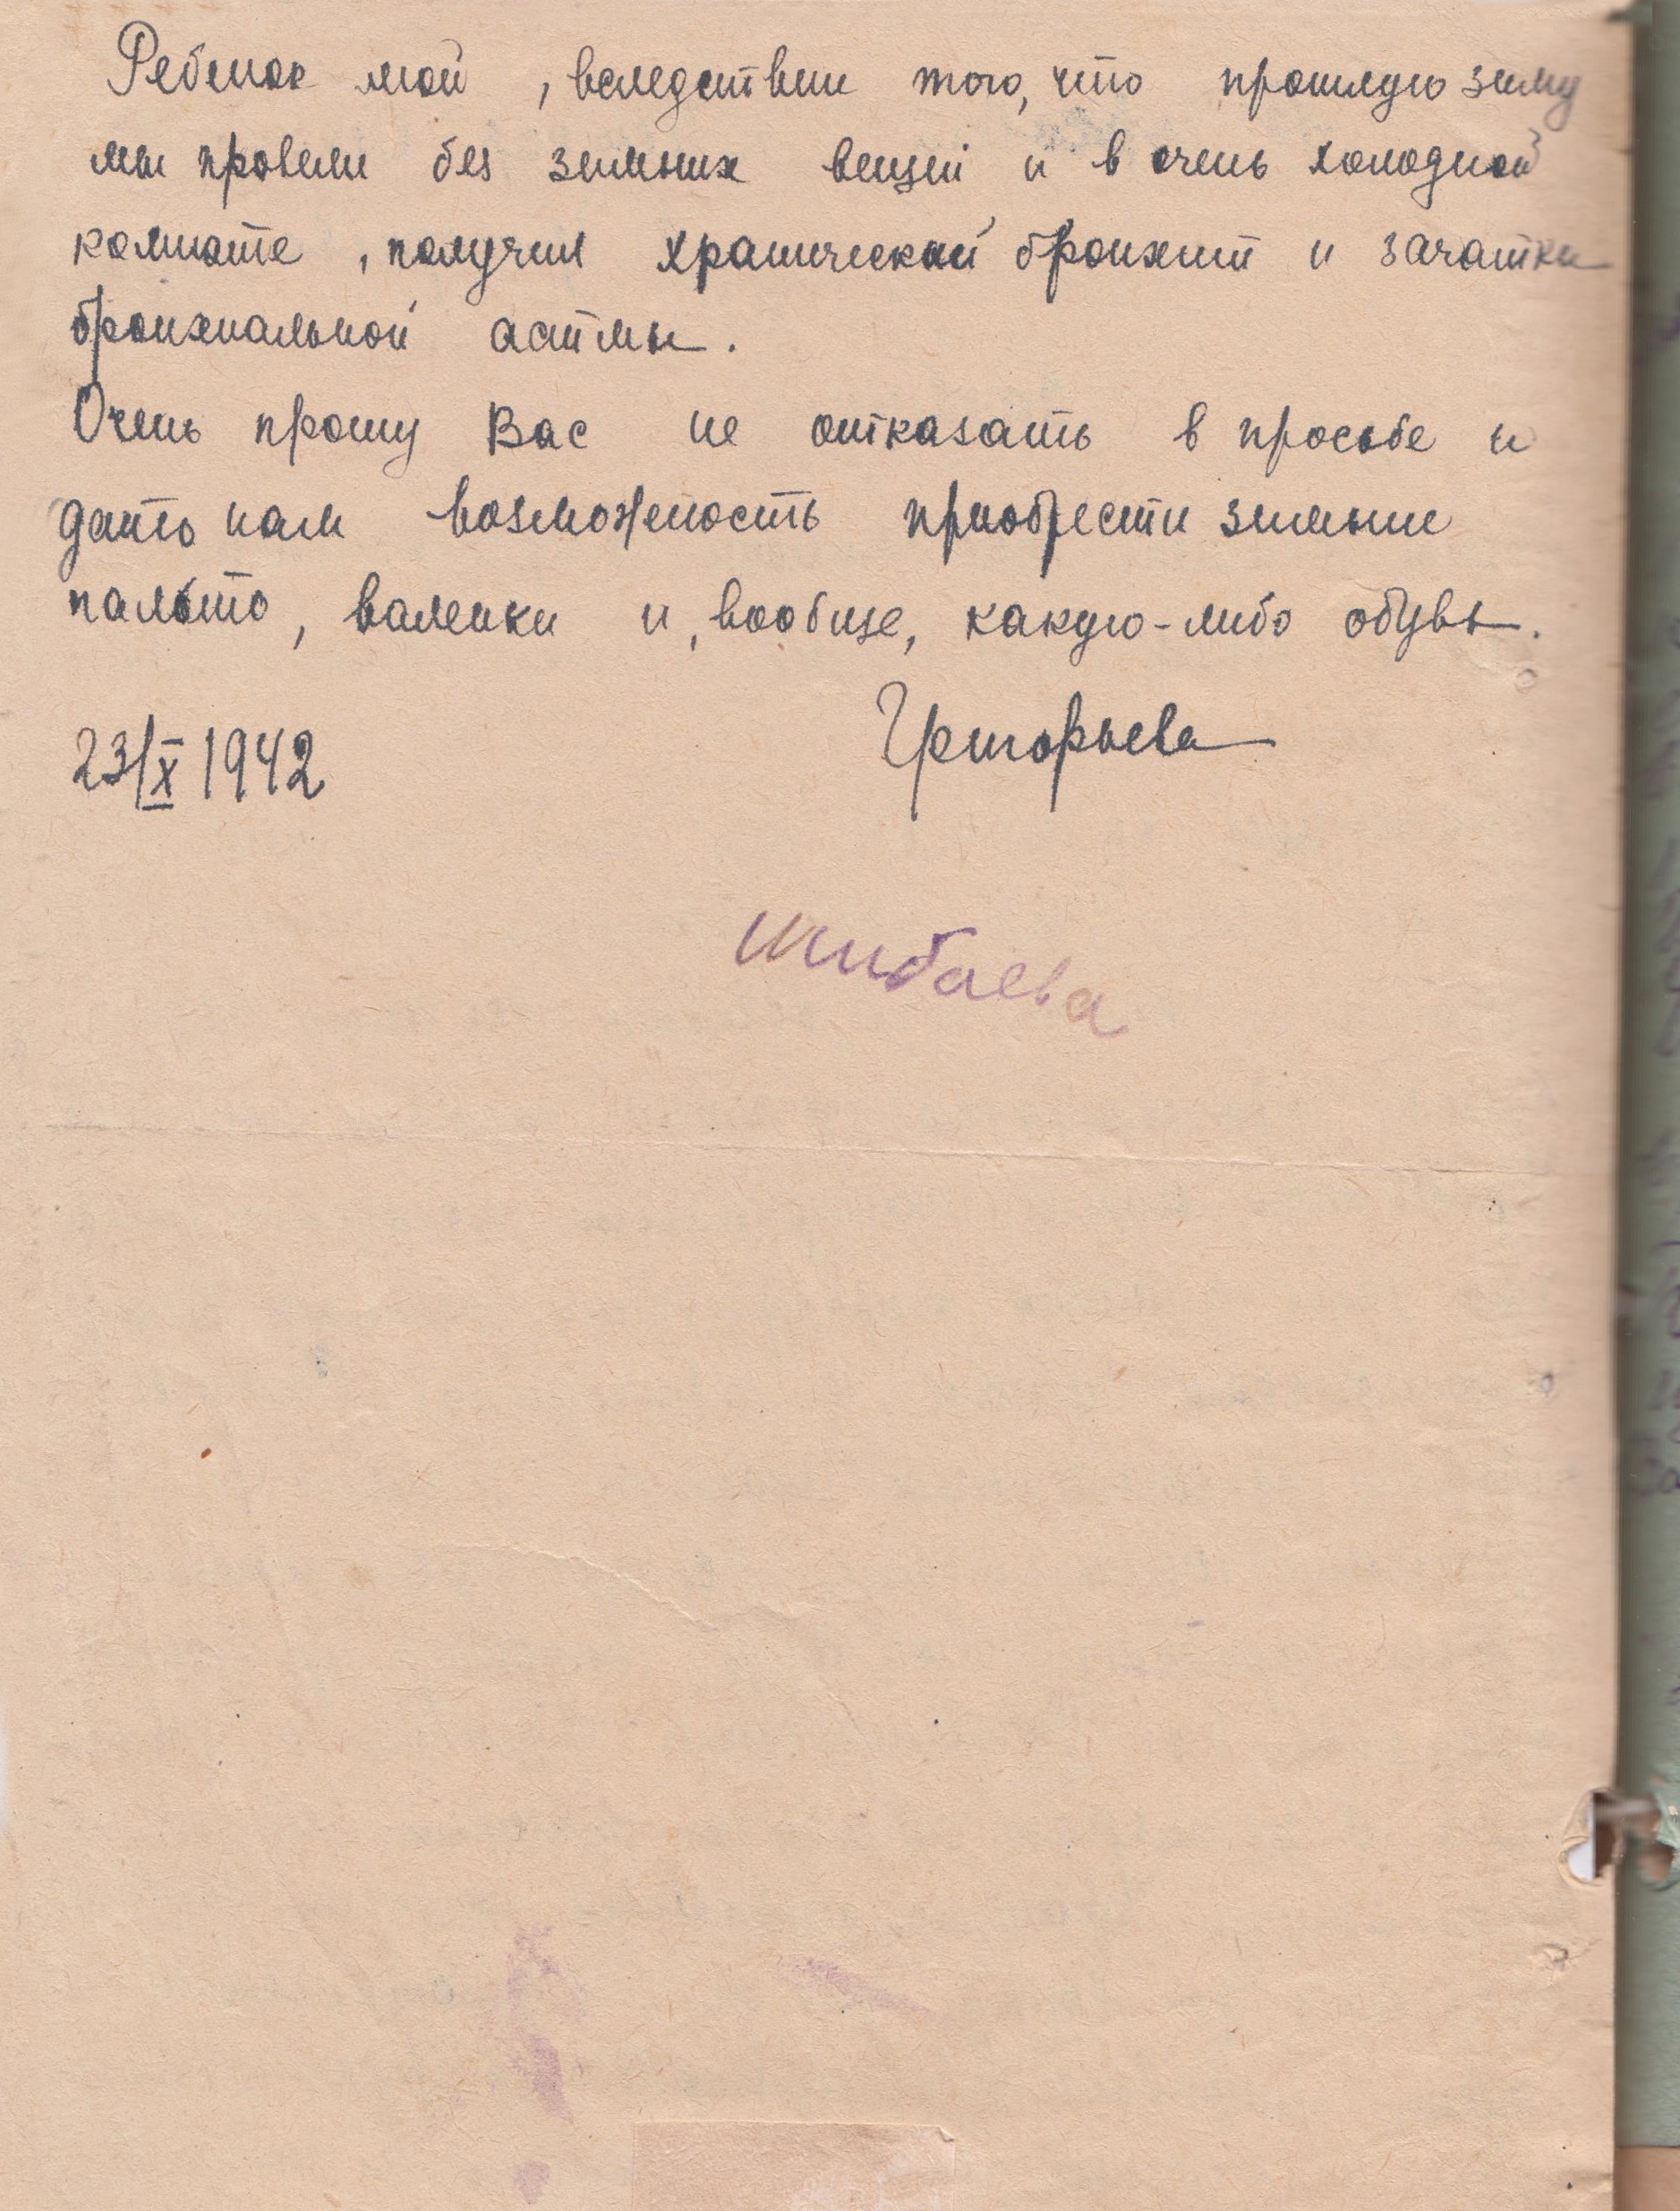 Ребенок мой, вследствии того, что прошлую зиму
мы провели без зимних вещей и в очень холодной
комнате, получил хранический бронхит и зачатки
бронхиальной астмы.
Очень прошу Вас не отказать в просьбе и
дать нам возможность приобрести зимнии
пальто, валенки и, вообще, какую-либо обувь.
23/X 1942 Григорьева
Шибаева